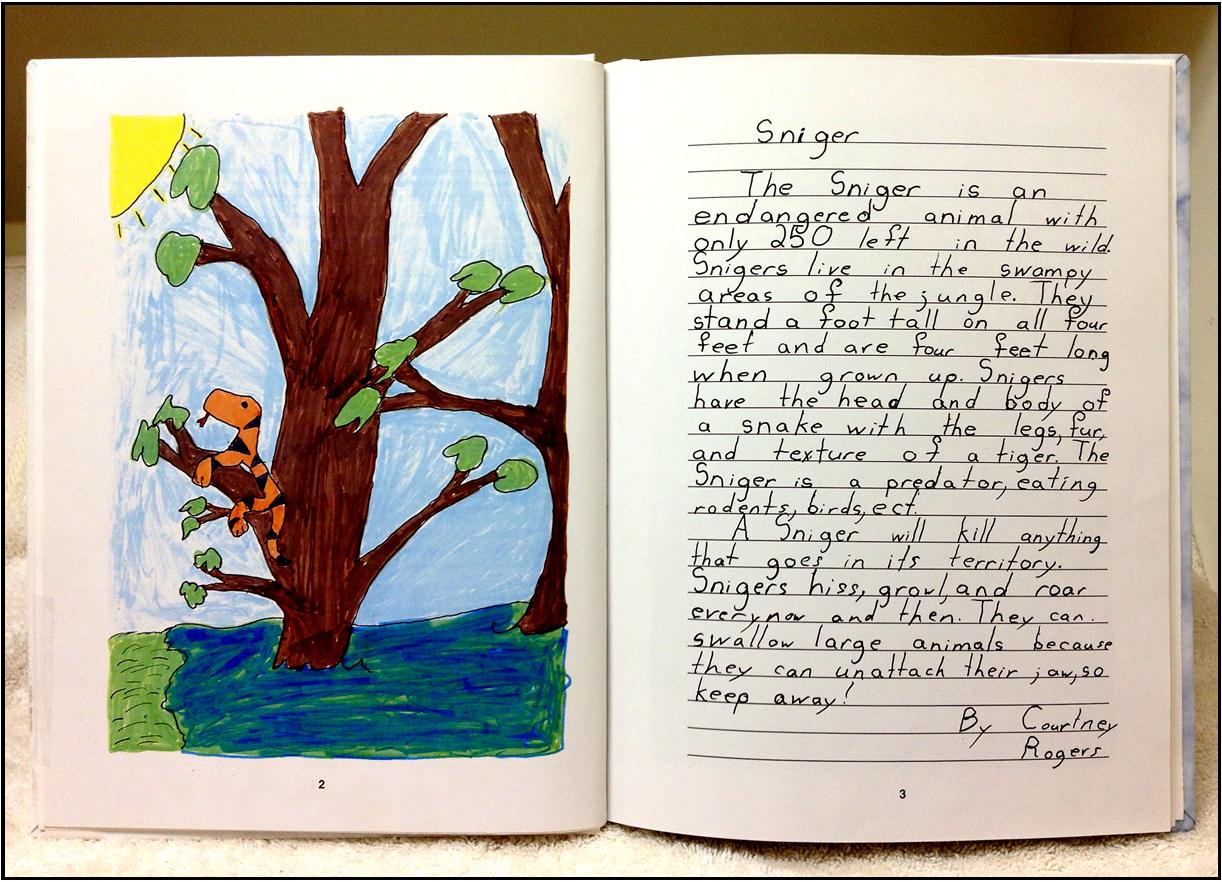 Sniger
The Sniger is an
endangered animal with
only 250 left in the wild.
Snigers live in the swampy
areas of the jungle. They
stand a foot tall on all four
feet and are four feet long
when grown up. Snigers
have the head and body of
a snake with the legs, fur,
and texture of a tiger. The
Sniger is a predator, eating
rodents, birds, ect.
A Sniger will kill anything
that goes in its territory.
Snigers hiss, growl, and roar
everynow and then. They can.
swallow large animals because
they can unattach their jaw, so
keep away!
By Courtney
Rogers
2
3